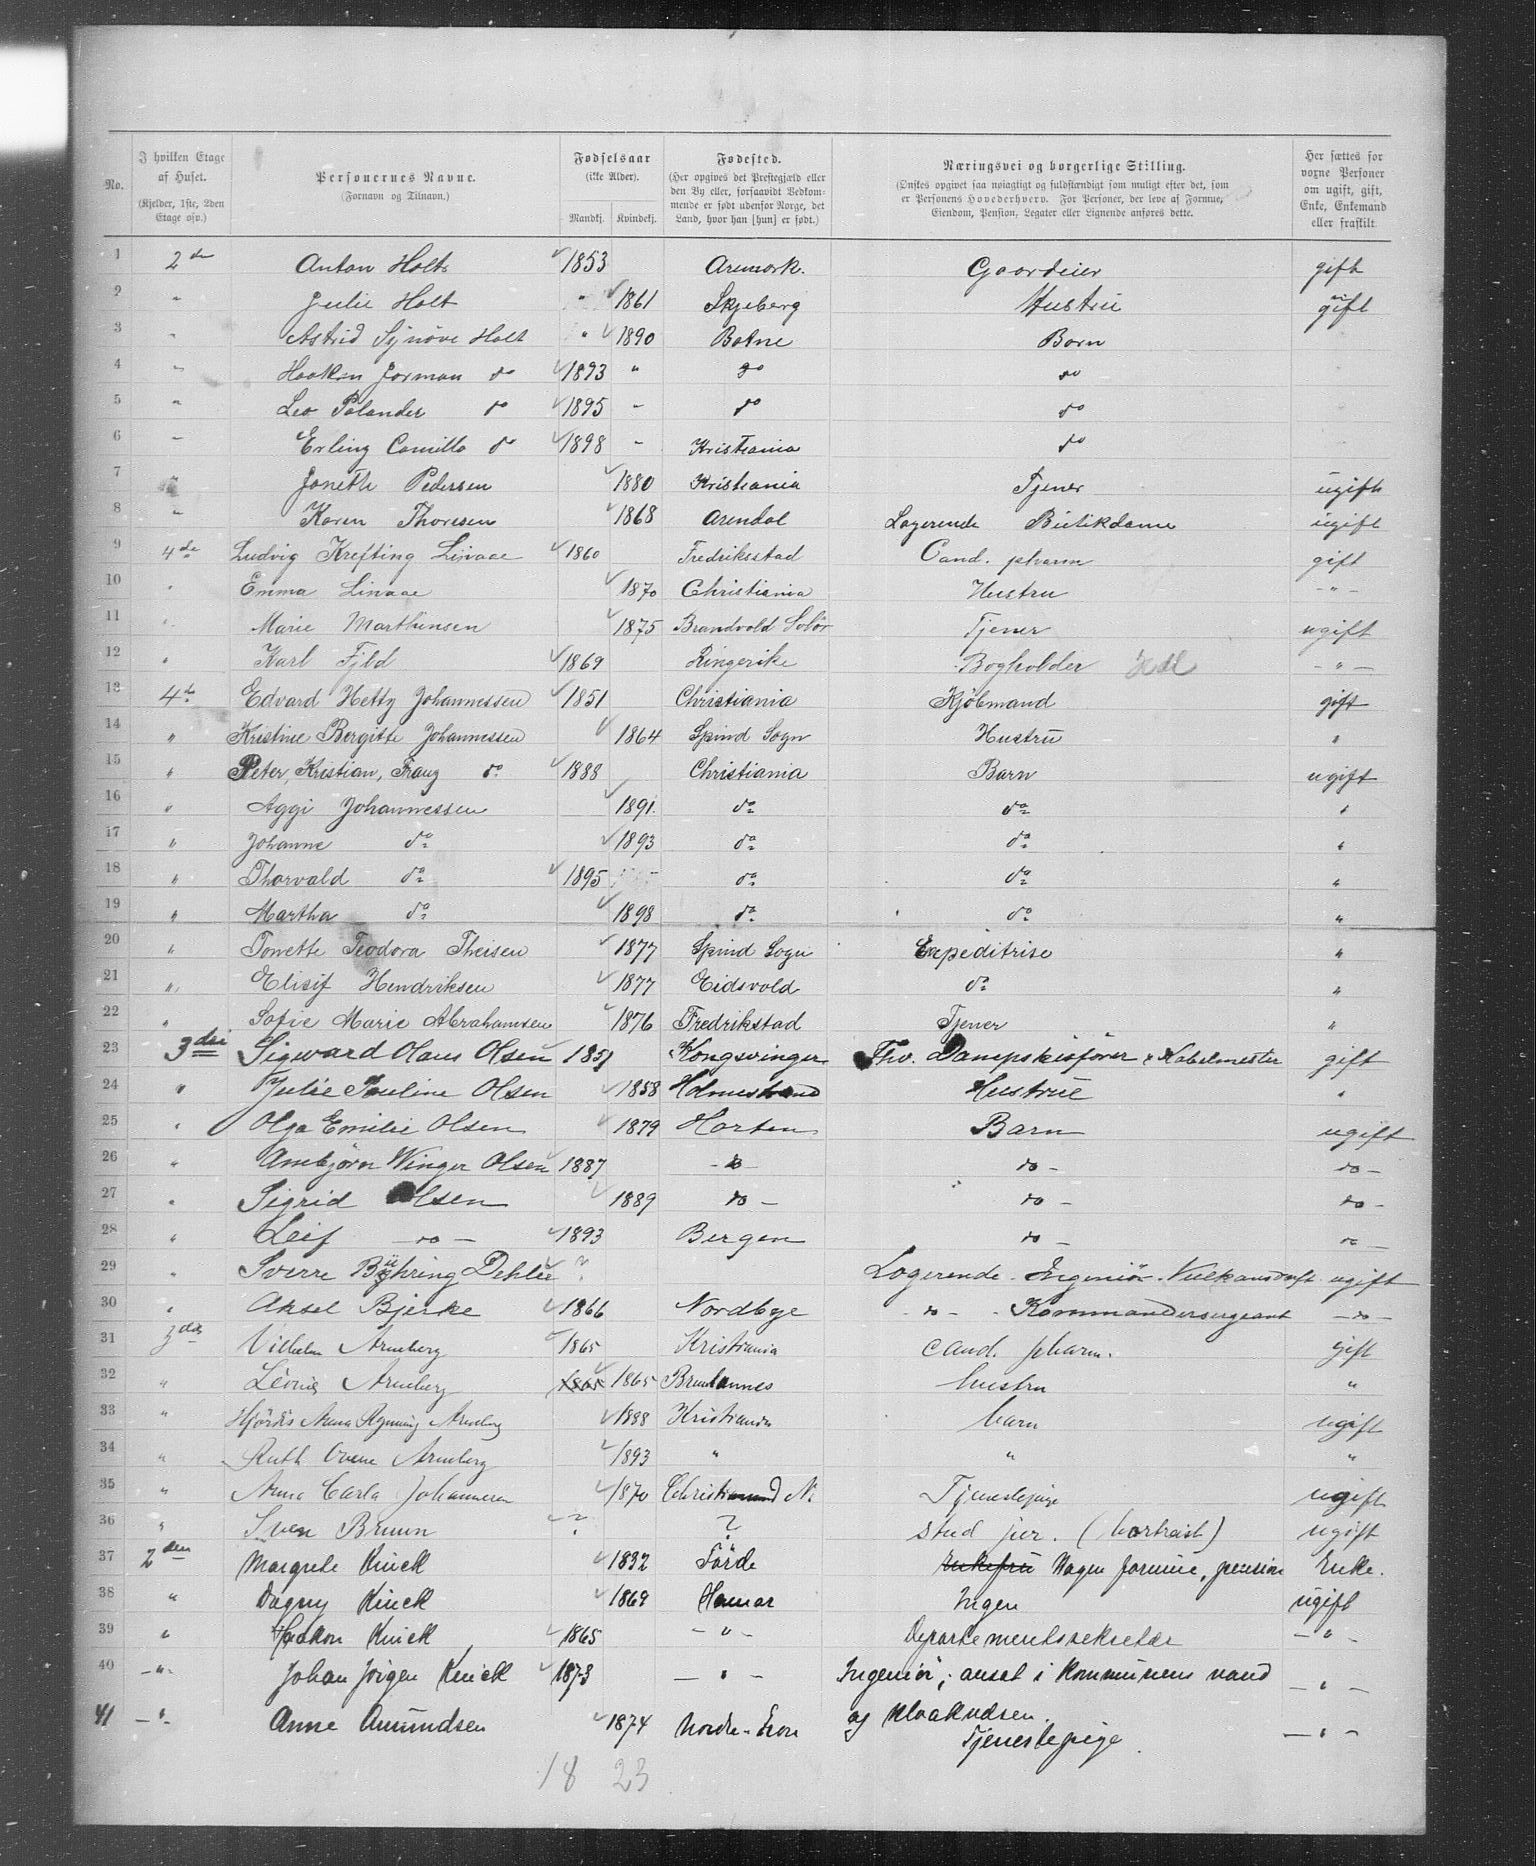 No. | I hvilken Etage af Huset. (Kjelder, 1ste, 2den Etage osv.) | Personernes Navne. (Fornavn og Tilnavn.) | Fødselsaar (ikke Alder). Mandkj. Kvindekj. | Fødested. (Her opgives det Prestegjæld eller den By eller, forsaavidt Vedkommende er født udenfor Norge, det Land, hvor han [hun] er født.) | Næringsvei og borgerlige Stilling. (Ønskes opgivet saa nøiagtigt og fuldstændigt som muligt efter det, som er Personens Hovederhverv. For Personer, der leve af Formue, Eiendom, Pension, Legater eller Lignende anføres dette. | Her sættes for voxne Personer om ugift, gift, Enke, Enkemand eller fraskilt.
1 2den Anton Holt 1853 Aremork. Gaardeier gift
2 " Julie Holt " 1861 Skjeberg Hustru gift
3 " Astrid Synöve Holt " 1890 Botne Barn
4 " Haakon Jorman do 1893 " do do
5 " Leo Palander do 1895 " do do
6 " Erling Camillo do 1898 " Kristiania do
7 " Janeth Pedersen 1880 Kristiania Tjener ugift
8 " Karen Thoresen 1868 Arendal Logerende Butikdame ugift
9 4de Ludvig Krefting Linaae 1860 Fredriksstad Cand. pharm gift
10 " Emma Linaae 1870 Christiania Hustru - " -
11 " Marie Marthinsen 1875 Brandvold Solör Tjener ugift
12 " Karl Fjld 1869 Ringerike Bogholder - " -
13 4de Edvard Hetty Johannessen 1851 Christiania Kjöbmand gift
14 " Kristine Bergitte Johannessen 1864 Spind Sogn Hustru "
15 " Peter, Kristian, Franz do 1888 Christiania Barn ugift
16 " Aggi Johannessen 1891. do do "
17 " Johanne do 1893 do do "
18 " Thorvald do 1895 do do "
19 " Martha do 1898 do do "
20 " Tonette Teodora Theisen 1877 Spind Sogn Expeditrise "
21 " Elisif Hendriksen 1877 Eidsvold do "
22 " Sofie Marie Abrahamsen 1876 Fredrikstad Tjener "
23 3die Sigward Olaus Olsen 1851 Kongsvinger Fhv. Dampskibsförer & Kabelmester gift
24 " Julie Pauline Olsen 1858 Holmestrand Hustrue "
25 " Olga Emilie Olsen 1879 Horten Barn ugift
26 " Arnbjörn Winger Olsen 1887 - do - do - do -
27 " Sigrid Olsen 1889 do - do - do -
28 " Leif - do - 1893 Bergen do - do -
29 " Sverre Bühring Dehlie ? Logerende - Ingeniör - ugift
30 " Aksel Bjerke 1866 Nordbye - do - - Kommandersergeant - do -
31 3die Vilhelm Arneberg 1865 Kristiania cand. pharm. gift
32 " Arneberg 1865 1865 hustru "
33 " Hjördis Anna Arneberg 1888 Kristiania barn ugift
34 " Ruth Arneberg 1893 " " "
35 " Anna Carla Johannesen 1870 Christiansund N. Tjenestepige ugift
36 " Sven Bruun ? ? stud jur. (bortreist) ugift
37 2den Margrete Kinck 1832 Förde Enkefru Nogen formue, pension Enke.
38 " Dagny Kinck 1869 Hamar Ingen ugift
39 " Haakon Kinck 1865 - " - Departementssekretær - " -
40 - " - Johan Jörgen Kinck 1873 - " - Ingeniör, ansat i kommunens vand og kloakvæsen. - " -
41 - " - Anne Amundsen 1874 Nordre - Tjenestepige - " -
18 23